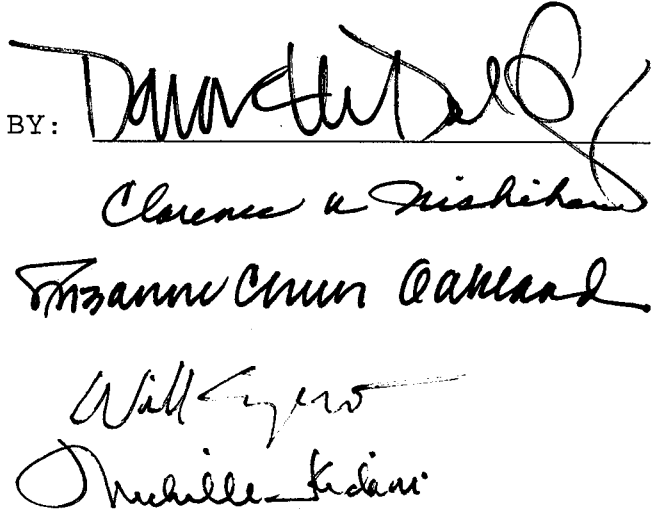 BY:
Clarence K Nishihara
Suzanne Chun Oakland
Will Espero
Michelle Kidani